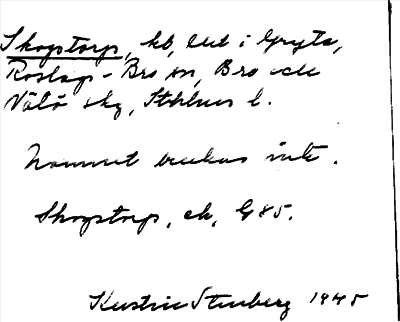 Skogstorp, kb, del i Gryta,
Roslags-Bro sn, Bro och
Vätö skg, Sthlms l.
Namnet brukas inte.
Skogstorp, ek, G 85.
Kerstin Stenberg 1945